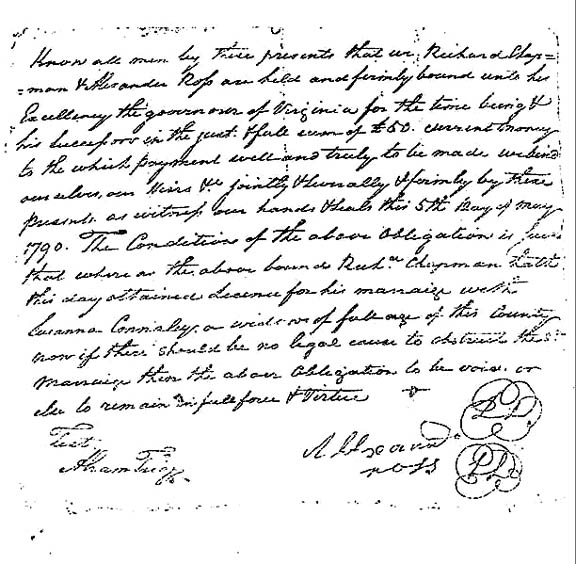 Know all men by these presents that we Richard Chap=
=man & Alexander Ross are held and firmly bound unto his
Excellency the governour of Virginia for the time being &
his Successors in the just & full sum of £50. current money
to the which payment well and truly to be made we bind
ourselves, our Heirs &c jointly & severally & firmly by these
presents as witness our hands & seals this 5th Day of May
1790. The Condition of the above Obligation is such
that where as the above bound Richd. Chapman hath
this day obtained Licence for his marraige with
Susanna Connaley, a widow of full age of this County
now if there should be no legal cause to obstruct the sd.
Marraige then the above Obligation to be void. or
else to remain in full force & Virtue
Test,
Abram Trigg
Allxand
ross